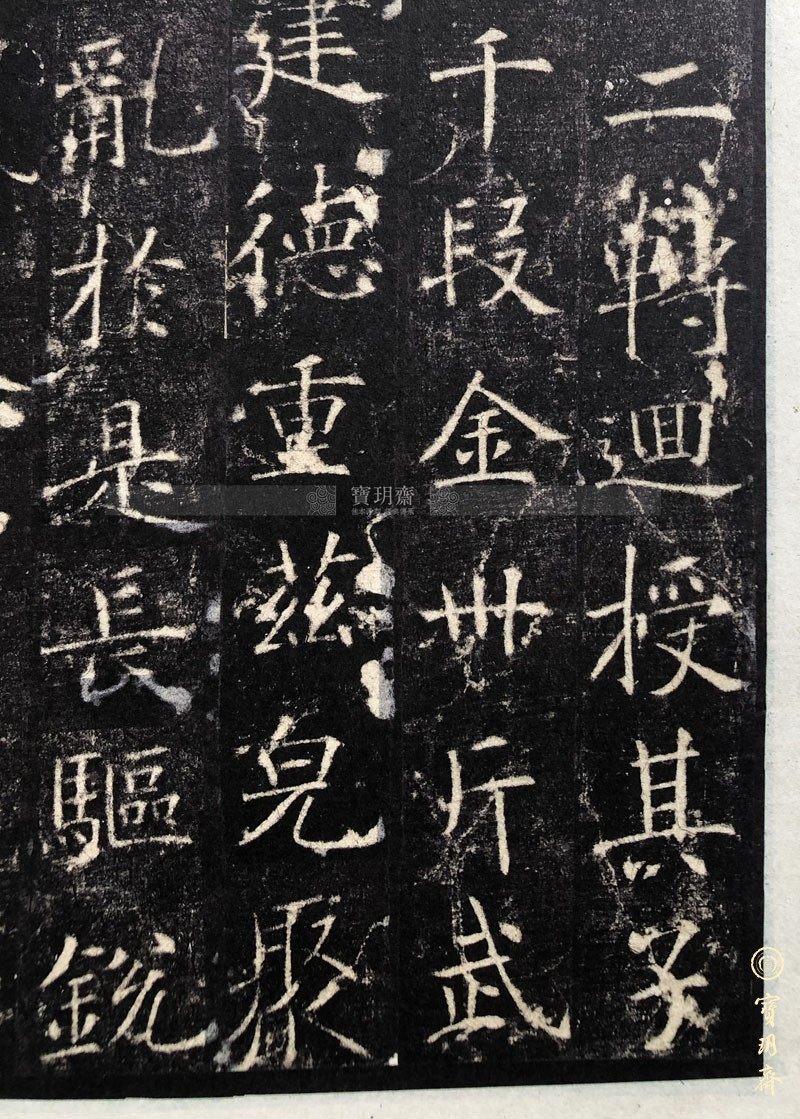 二轉迴授其子
千段金卌斤武
建德重茲皃聚
亂於是長驅銳
寶玥齋
寶玥齋